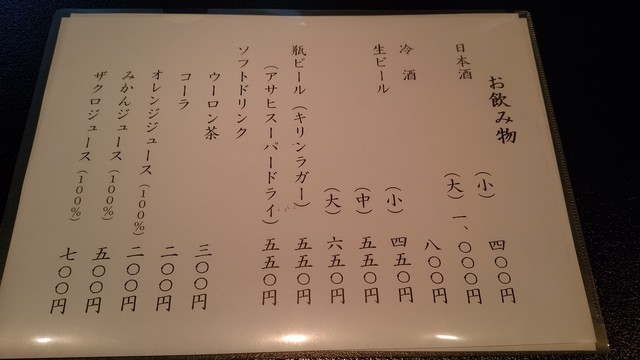 お飲み物
日本酒 (小) 四〇〇円
(大) 一、〇〇〇円
冷酒 八〇〇円
生ビール (小) 四五〇円
(中) 五五〇円
(大) 六五〇円
瓶ビール (キリンラガー) 五五〇円
(アサヒスーパードライ) 五五〇円
ソフトドリンク
ウーロン茶 三〇〇円
コーラ 二〇〇円
オレンジジュース (100%) 二〇〇円
みかんジュース (100%) 五〇〇円
ザクロジュース (100%) 七〇〇円